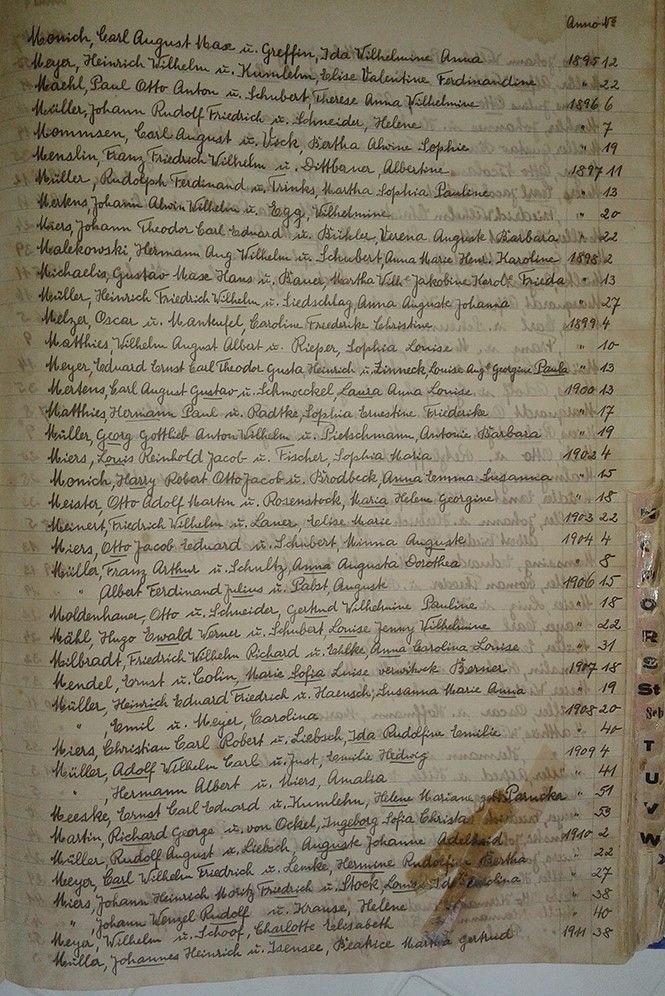 Anno No
Monich, Carl August Max u. Greffin, Ida Wilhelmine Anna 1895 12
Meyer, Heinrich Wilhelm u. Kumlehn, Elise Valentine Ferdinandine " 22
Maehl, Paul Otto Anton u. Schubert, Therese Anna Wilhelmine 1896 6
Müller, Johann Rudolf Friedrich u. Schneider, Helene " 7
Mommsen, Carl August u. Vick, Bertha Alwine Sophie " 19
Menslin, Franz Friedrich Wilhelm u. Dittbaner Albertine 1897 11
Müller, Rudolph Ferdinand u. Trinks, Martha Sophia Pauline " 13
Mertens, Johann Alwin Wilhelm u. Egg, Wilhelmine " 20
Miers, Johann Theodor Carl Eduard u. Bühler, Verena Auguste Barbara " 22
Malekowski, Hermann Aug. Wilhelm u. Schubert, Anna Marie Henr. Karoline 1898 2
Michaelis, Gustav Max Hans u. Bauer, Martha Wilh. Jakobine Karol. Frieda " 13
Müller, Heinrich Friedrich Wilhelm u. Liedschlag, Anna Auguste Johanna " 27
Melzer, Oscar u. Manteufel, Caroline Friederike Christine 1899 4
Matthies Wilhelm August Albert u. Rieper, Sophia Louise " 10
Meyer, Eduard Ernst Carl Theodor Gusta Heinrich u. Linneck, Louise Aug. Georgine Paula " 13
Mertens, Carl August Gustav u. Schmoeckel Laura Anna Louise 1900 13
Matthies, Hermann Paul u. Radtke, Sophia Ernestine Friederike " 17
Müller, Georg Gottlieb Anton Wilhelm u. Pietschmann, Antonie Barbara " 19
Miers, Louis Reinhold Jacob u. Fischer, Sophia Maria 1902 4
Monich, Harry Robert Otto Jacob u. Brodbeck, Anna Emma Susanna " 15
Meister, Otto Adolf Martin u. Rosenstock, Maria Helene Georgine " 18
Meinert, Friedrich Wilhelm u. Lauer, Elise Marie 1903 22
Miers, Otto Jacob Eduard u. Schubert, Minna Auguste 1904 4
Müller, Franz Arthur u. Schultz, Anna Augusta Dorothea " 8
" Albert Ferdinand Julius u. Pabst, Auguste 1906 15
Moldenhauer, Otto u. Schneider, Gertrud Wilhelmine Pauline " 18
Mähl, Hugo Ewald Werner u. Schubert, Louise Jenny Wilhelmine " 22
Milbradt, Friedrich Wilhelm Richard u. Ehlke, Anna Carolina Louise " 31
Mendel, Ernst u. Colin, Marie Sofia Luise verwitwek Berner 1907 18
Müller, Heinrich Eduard Friedrich u. Haensch, Susanna Marie Anna " 19
" , Emil u. Meyer, Carolina 1908 20
Miers, Christian Carl Robert u. Liebsch, Ida Rudolfine Emilie " 40
Müller, Adolf Wilhelm Carl u. Just, Emilie Hedwig 1909 4
" , Hermann Albert u. Miers, Amalia " 41
Meeske, Ernst Carl Eduard u. Kumlehn, Helene Mariane " 51
Martin, Richard George u. von Ockel, Ingeborg Sofia Christa " 53
Müller, Rudolf August u. Liebsch, Auguste Johanne Adelheid 1910 2
Meyer, Carl Wilhelm Friedrich u. Lemke, Hermine Rudolfine Bertha " 22
Miers, Johann Heinrich Moritz Friedrich u. Stock, " 27
" , Johann Wenzel Rudolf u. Krause, Helene " 38
Meyer, Wilhelm u. Schoof, Charlotte Elisabeth " 40
Müller, Johannes Heinrich u. Isensee, Beatrice Martha Gertrud 1911 38
O
R
S
St
Sch
T
U
V
W